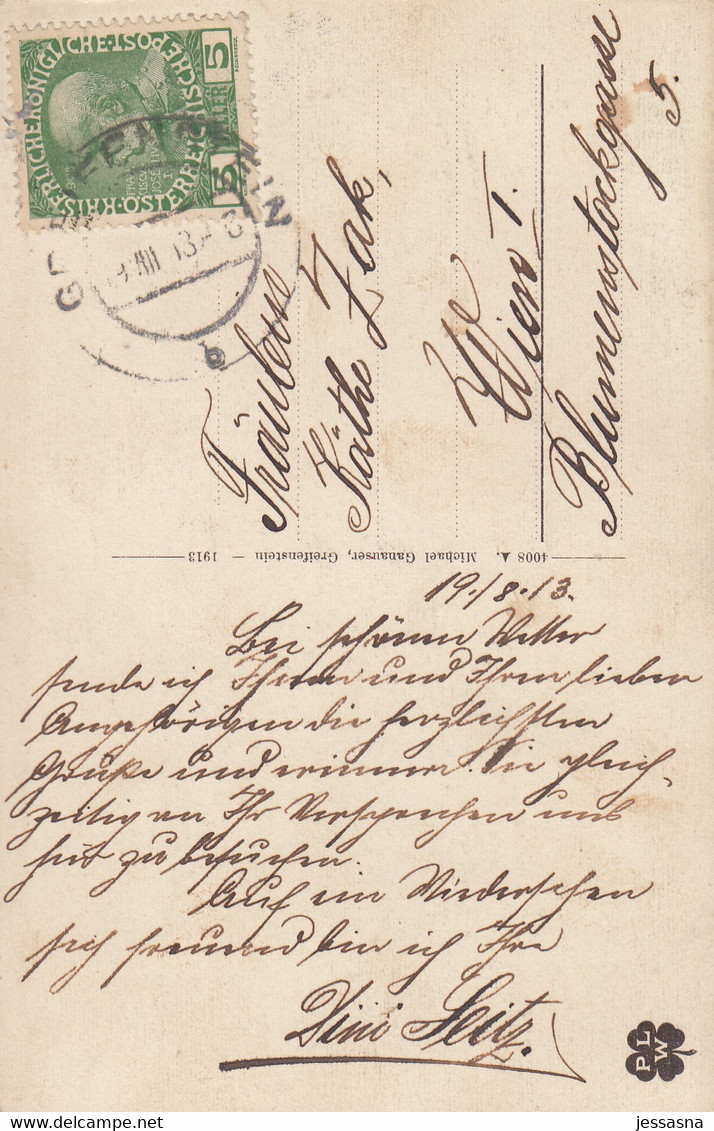 KAISERLICHE KÖNIGLICHE ÖSTERREICHISCHE POST
5 HELLER 5
FRANCISCUS JOSEPH I
GREIFENSTEIN
13
b
Fräulein
Käthe Zak,
Wien I.
Blumenstockgasse
5.
4008 A. Michael Ganauser, Greifenstein — 1913
19./8.13.
Bei schönem Wetter
sende ich Ihnen und Ihren lieben
Angehörigen die herzlichsten
Grüße und erinnere Sie gleich-
zeitig an Ihr Versprechen uns
hier zu besuchen.
Auf ein Wiedersehen
sich freuend bin ich Ihre
Seitz.
P L W
jessasna